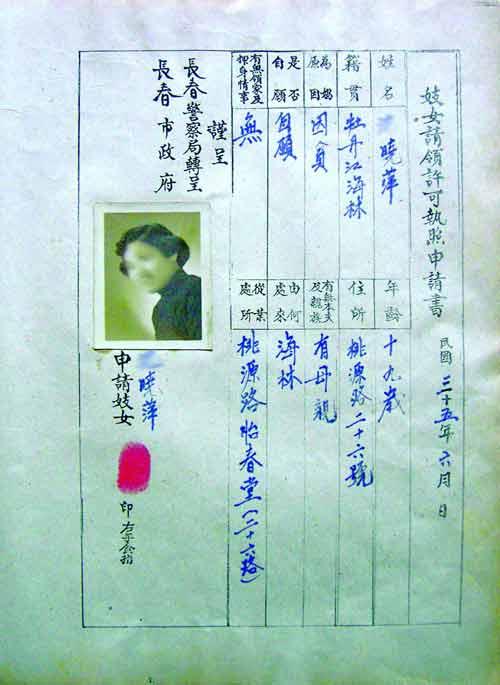 妓女請領許可執照申請書
民國三十五年六月 日
姓名 曉萍
年齡 十九歲
籍貫 牡丹江海林
住所 桃源路二十六號
為娼原因 因貧
有無本夫及親族 有母親
是否自願 自願
由何處來 海林
有無領家及押身情事 無
從業處所 桃源路怡春堂(二十六路)
謹呈
長春警察局轉呈
長春市政府
申請妓女 曉萍
印 右手食指